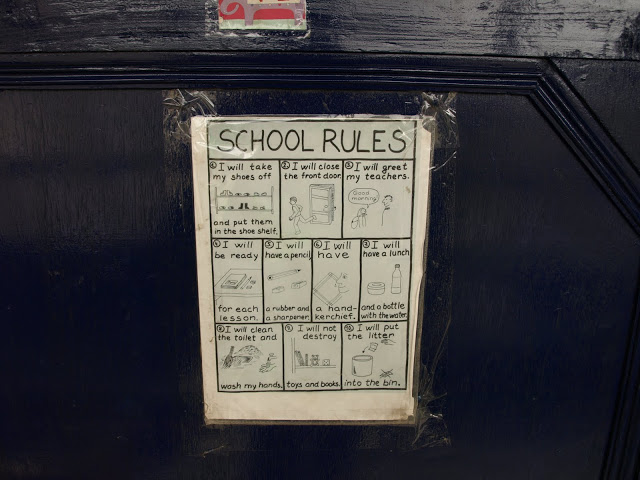 SCHOOL RULES
1. I will take
my shoes off
and put them
in the shoe shelf.
2. I will close
the front door.
3. I will greet
my teachers.
Good
morning
4. I will
be ready
for each
lesson.
5. I will
have a pencil,
a rubber and
a sharpener.
6. I will
have
a hand-
kerchief.
7. I will
have a lunch
and a bottle
with the water.
8. I will clean
the toilet and
wash my hands.
9. I will not
destroy
toys and books.
10. I will put
the litter
into the bin.